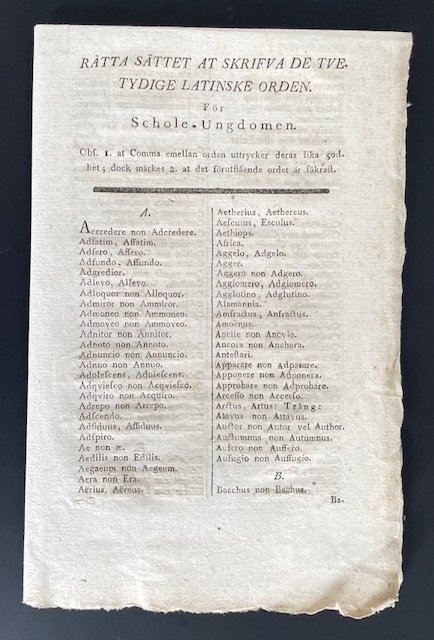 RÄTTA SÄTTET AT SKRIFVA DE TVE-
TYDIGE LATINSKE ORDEN.
För
Schole-Ungdomen.
Obs. 1. at Comma emellan orden uttrycker deras lika god-
het; dock märkes 2. at det förutstående ordet är säkrast.
A.
Accredere non Adcredere.
Adfatim, Affatim.
Adfero, Affero.
Adfundo, Affundo.
Adgredior.
Adlevo, Allevo.
Adloquor non Alloquor.
Admiror non Ammiror.
Admoneo non Ammoneo.
Admoveo non Ammoveo.
Adnitor non Annitor.
Adnoto non Annoto.
Adnuncio non Annuncio.
Adnuo non Annuo.
Adolescens, Adulescens.
Adqviesco non Acqviesco.
Adqviro non Acqviro.
Adrepo non Arrepo.
Adscendo.
Adsiduus, Assiduus.
Adspiro.
Ae non æ.
Aedilis non Edilis.
Aegaeum non Aegeum.
Aera non Era.
Aërius, Aëreus.
Aetherius, Aethereus.
Aesculus, Esculus.
Aethiops.
Africa.
Aggelo, Adgelo.
Agger.
Aggero non Adgero.
Agglomero, Adglomero.
Agglutino, Adglutino.
Alamannia.
Amfractus, Anfractus.
Amoenus.
Ancile non Ancyle.
Ancora non Anchora.
Antestari.
Apparare non Adparare.
Apponere non Adponera.
Approbare non Adprobare.
Arcesso non Accerso.
Arctus, Artus: Trång:
Atavus non Attavus.
Auctor non Autor vel Author.
Auctumnus non Autumnus.
Aufero non Auffero.
Aufugio non Auffugio.
B.
Bacchus non Bachus.
Ba-